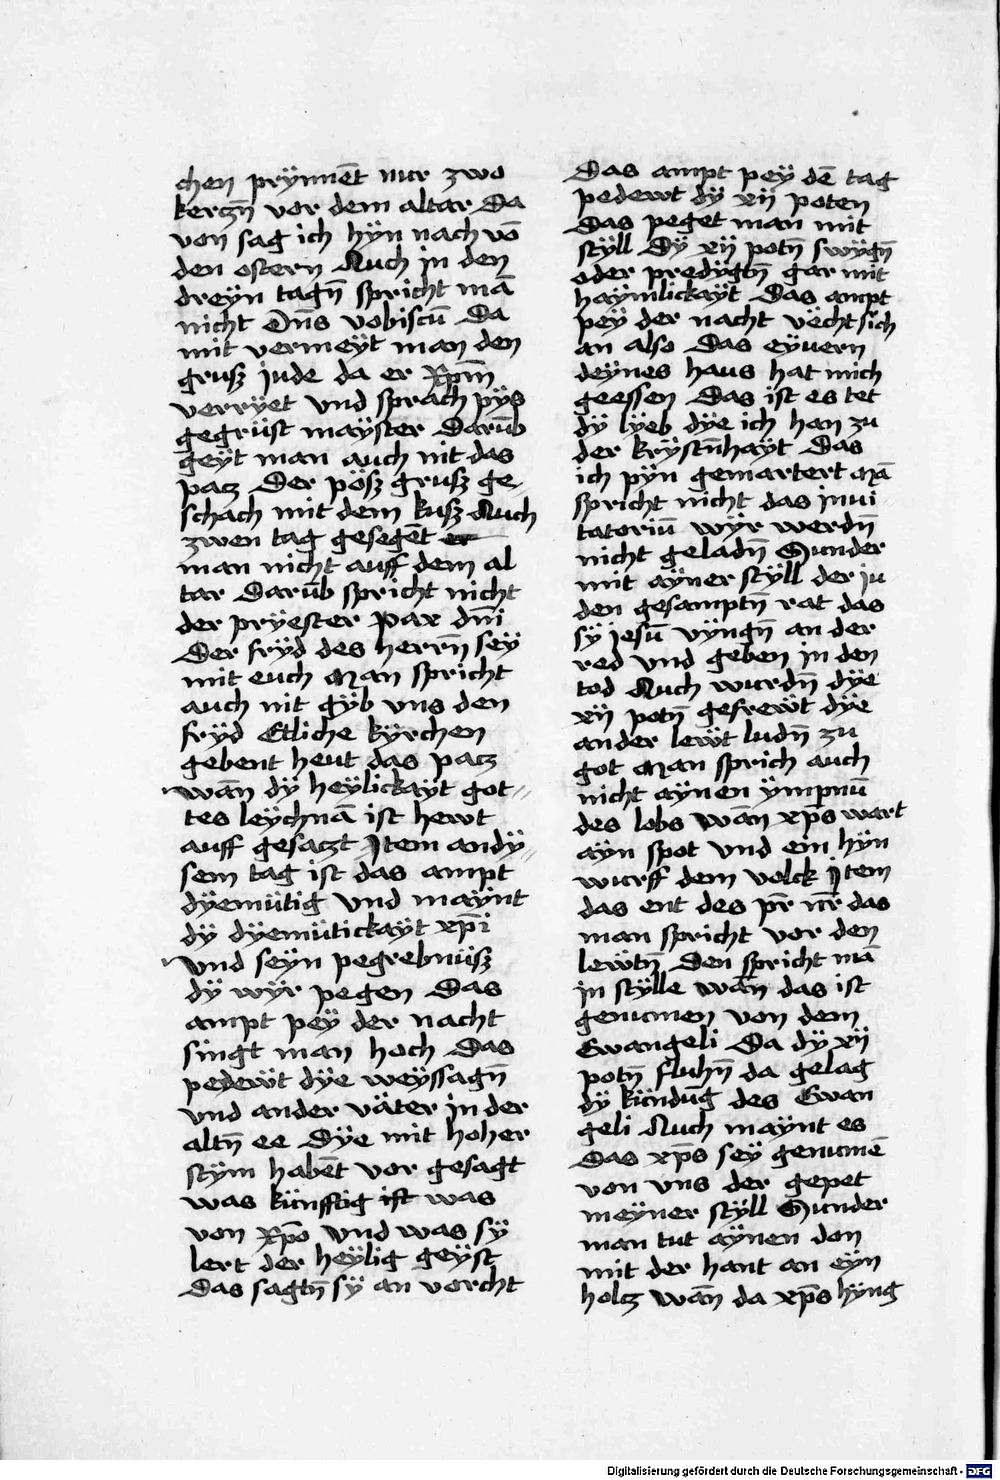 chen prÿnnēt nur zwo
kerczn̄ vor dem altar Da
von sag ich hÿn nach vō
den ostern Auch in den
dreÿn tagn̄ spricht mā
nicht Dn̄s vobiscū Da
mit vermeÿt man den
gruß iude da er xp̄m
verryet vnd sprach pÿs
gegrüst maÿster Darūb
geÿt man auch nit das
pacz Der pösz grusz ge-
schach mit dem kusz Auch
zwen tag gesegēt
man nicht auff dem al
tar Darūb spricht nicht
der prÿester Pax dn̄i
Der frÿd des herrn̄ seÿ
mit euch Man spricht
auch nit gÿb vns den
frÿd Etliche kÿrchen
gebent heut das pacz
wān dÿ heÿlickaÿt got-
tes leÿchnā ist hewt
auff gesaczt Item an dÿ-
sem tag ist das ampt
dÿemütig vnd maÿnt
dÿ dÿemütickaÿt xp̄i
vnd seÿn pegrebnüsz
dÿ wÿr pegen Das
ampt peÿ der nacht
singt man hoch Das
pedewt dÿe weÿssagn̄
vnd ander väter in der
altn̄ ee Dÿe mit hoher
stÿm habēt vor gesagt
was künfftig ist was
von xp̄o vnd was sÿ
lert der heÿlig geÿst
Das sagtn̄ sÿ an vorcht
Das ampt peÿ dē tag
pedewt dÿ xij poten
Das peget man mit
stÿll Dÿ xij potn̄ swÿgn̄
oder predÿgtn̄ gar mit
haÿmlickaÿt Das ampt
peÿ der nacht vēcht sich
an also Das eÿuern
deÿnes haus hat mich
geessen Das ist es tet
dÿ lÿeb dÿe ich han zu
der krÿstn̄haÿt Das
ich pÿn gemartert Mā
spricht nicht das inui
tatoriū wÿr werdn̄
nicht geladn̄ Sunder
mit aÿner stÿll der iu
den gesamptn̄ rat das
sÿ iesū vÿngn̄ an der
red vnd geben in den
tod Auch wurdn̄ dÿe
xij potn̄ gefrewt dÿe
ander lewt ludn̄ zu
got Man sprich auch
nicht aÿnen ÿmpnū
des lobs wān xp̄s wart
aÿn spot vnd ein hÿn
wurff dem volck Item
das ent des pr̄ nr̄ das
man spricht vor den
lewtn̄ Den spricht mā
in stÿlle wān das ist
genumen von dem
Ewangeli Da dÿ xij
potn̄ fluhn̄ da gelag
dÿ kündūg des Ewan
geli Auch maÿnt es
Das xp̄s seÿ genumē
von vns der gepet
meÿner stÿll Sunder
man tut aÿnen don
mit der hant an eÿn
holcz wān da xp̄s hÿng
Digitalisierung gefördert durch die Deutsche Forschungsgemeinschaft - DFG